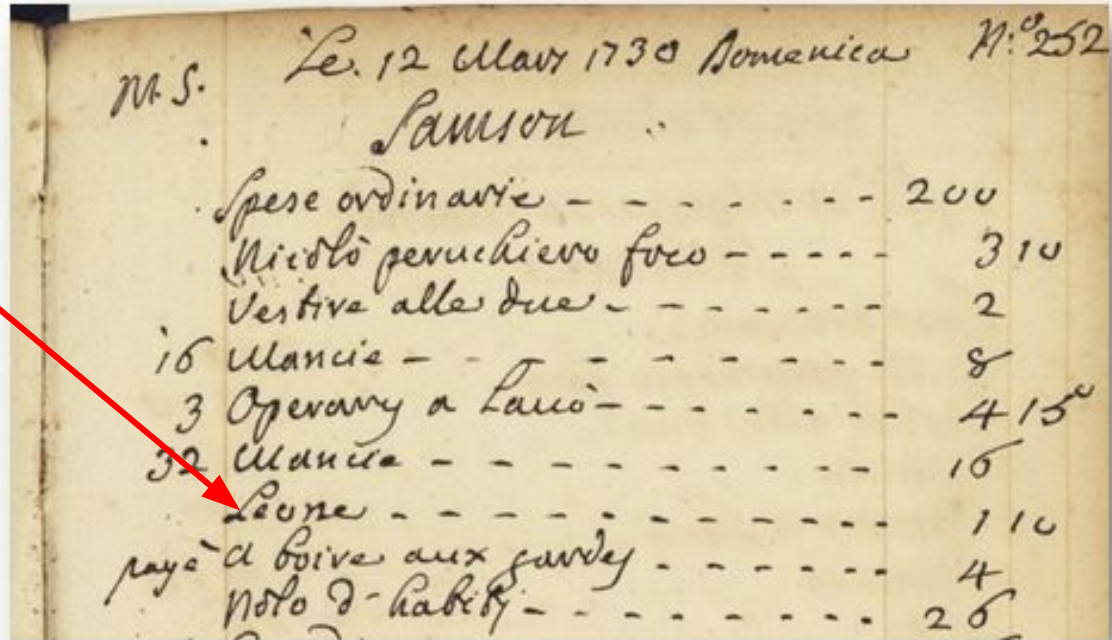 Le. 12 Mars 1730 Domenica N.º 252
M. S.
Samson
Spese ordinarie - - - - - - - - 200
Nicolò peruchiero foco - - - - - 3 10
Vestire alle due - - - - - - - 2
16 Mancie - - - - - - - - 8
3 Operary a - - - - - - 4 15
32 Mancie - - - - - - - - - 16
Leone - - - - - - - - - - - - 1 10
payè a boire aux gardes - - - - - - 4
Nolo d'habiti - - - - - - - - - 26